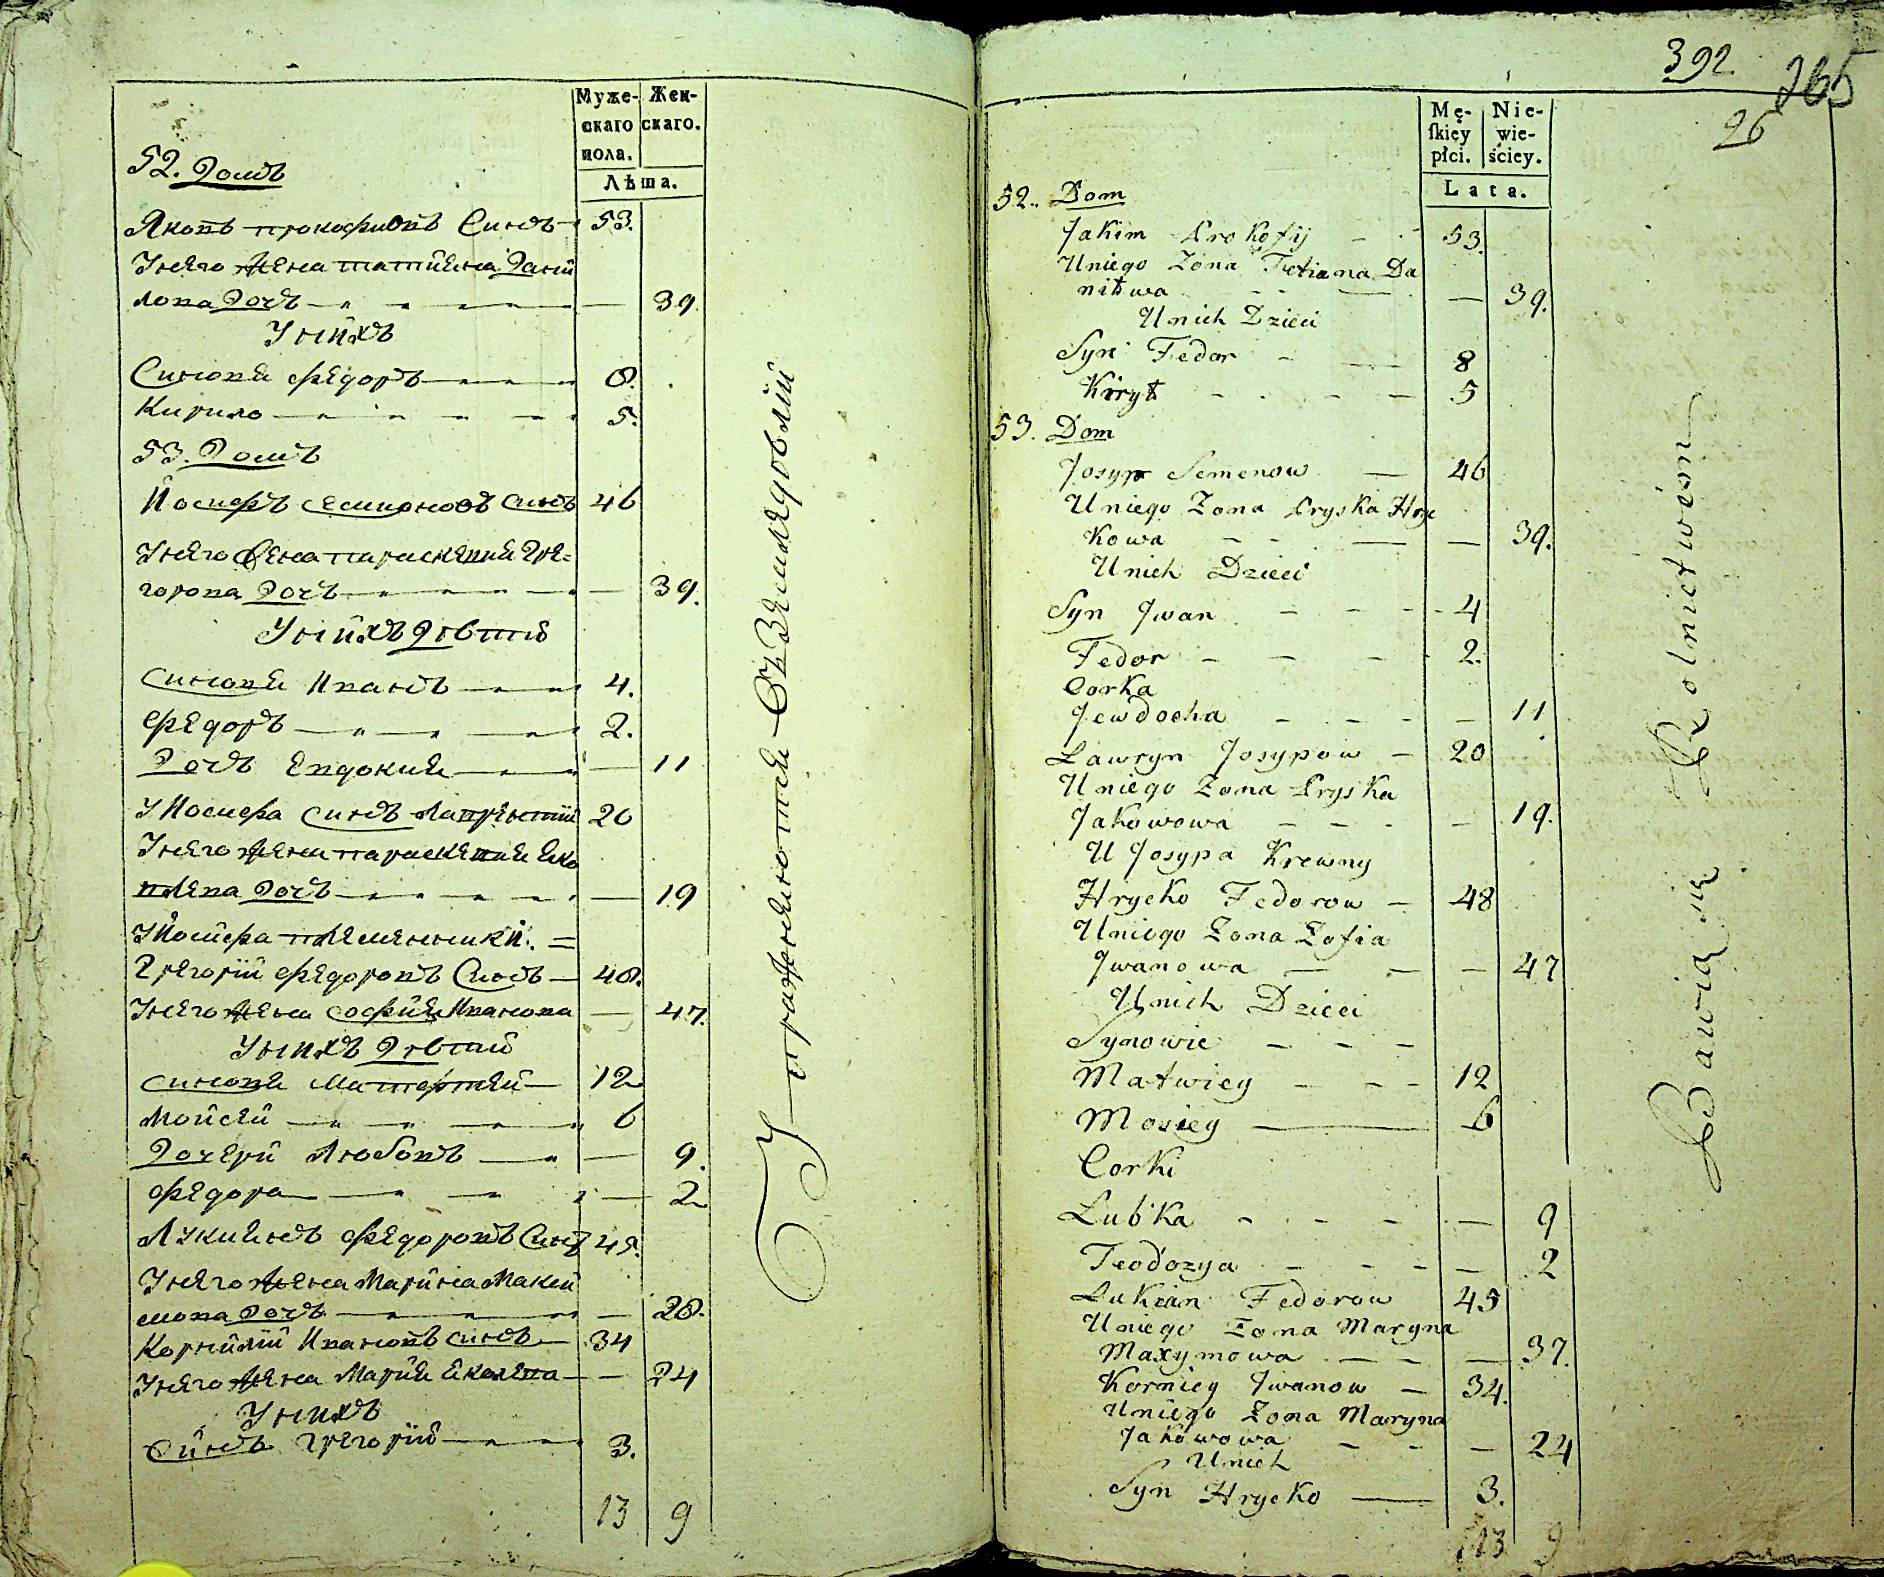 Муже-
скаго
пола.
Жен-
скаго.
Лѣта.
52. Домъ
Яковъ Прокофиовъ Синъ 53.
Унего Жена Татияна Дани
лова Дочъ 39
Унихъ
Синови Федоръ 8.
Кирило 5.
53. Домъ
Йосифъ Семионовъ Синъ 46
Унего Жена Параскевия Гре-
горова Дочъ 39.
Унихъ Дѣтий
Синови Иванъ 4.
Федоръ 2.
Дочъ Евдокия 11
У Иосифа Синъ Лаврентий 20
Унего Жена Параскевия Яко
влева Дочъ 19
У Йосифа племенники. =
Григорий Федоровъ Синъ 48.
Унего Жена София Иванова 47.
Унихъ Дѣтий
Синови Матфей 12
Мойсей 6
Дочери Любовъ 9.
Федора 2
Лукиянъ Федоровъ Синъ 45.
Унего Жена Марина Макси
мова Дочъ 28.
Корнилий Ивановъ Синъ 34
Унего Жена Мария 24
Унихъ
Синъ Григорий 3.
13 9
Упражняются Въ Земледѣлии
392.
265
26
Mę-
skiey
płci.
Nie-
wie-
ściey.
Lata.
52. Dom
Jakim Prokofij 53.
Uniego Zona Tetiana Da
niłwa 39.
Unich Dzieci
Syn Fedor 8
Kirył 5
53. Dom
Josyp Semenow 46
Uniego Zona Pryska Hry
kowa 39.
Unich Dzieci
Syn Jwan 4
Fedor 2.
Corka
Jewdocha 11
Lawryn Josypow 20
Uniego Zona Pryska
Jakowowa 19.
U Josypa Krewny
Hrycko Fedorow 48
Uniego Zona Zofia
Jwanowa 47
Unich Dzieci
Synowie
Matwiey 12
Mosiey 6
Corki
Lubka 9
Teodozya 2
Lukian Fedorow 45
Uniego Zona Maryna
Maxymowa 37.
Korniey Jwanow 34.
Uniego Zona Maryna
Jakowowa 24
Unich
Syn Hrycko 3.
13 9
Bawią się Rolnictwem